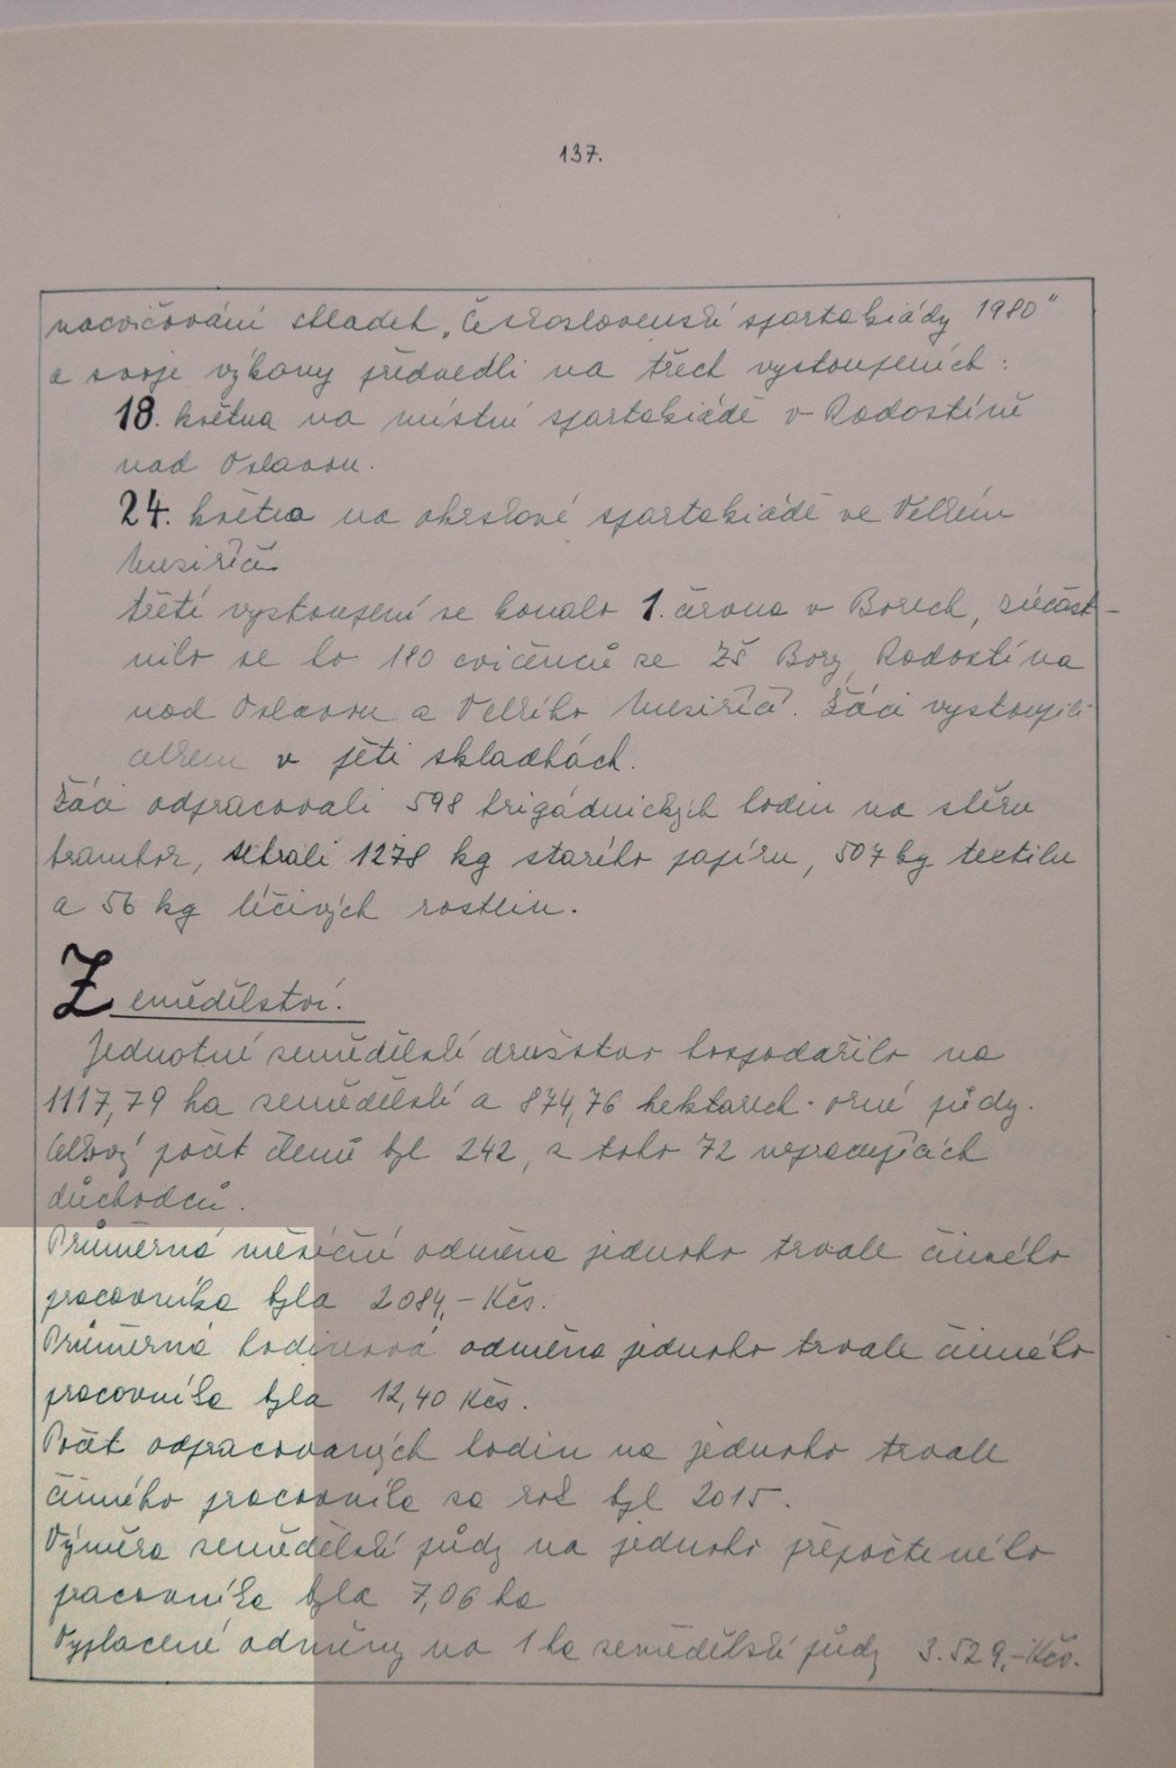 137.
nacvičování skladeb „Československé spartakiády 1980"
a svoje výkony předvedli na třech vystoupeních:
18. května na místní spartakiádě v Radostíně
nad Oslavou.
24. května na okrskové spartakiádě ve Velkém
Meziříčí
třetí vystoupení se konalo 1. června v Borech, zúčast-
nilo se ho 180 cvičenců ze ZŠ Bory, Radostína
nad Oslavou a Velkého Meziříčí. Žáci vystoupili
celkem v pěti skladbách.
Žáci odpracovali 598 brigádnických hodin na sběru
brambor, sebrali 1278 kg starého papíru, 507 kg textilu
a 56 kg léčivých rostlin.
Zemědělství.
Jednotné zemědělské družstvo hospodařilo na
1117,79 ha zemědělské a 874,76 hektarech orné půdy.
Celkový počet členů byl 242, z toho 72 nepracujících
důchodců.
Průměrná měsíční odměna jednoho trvale činného
pracovníka byla 2084,- Kčs.
Průměrná hodinová odměna jednoho trvale činného
pracovníka byla 12,40 Kčs.
Počet odpracovaných hodin na jednoho trvale
činného pracovníka za rok byl 2015.
Výměra zemědělské půdy na jednoho přepočteného
pracovníka byla 7,06 ha
Vyplacené odměny na 1 ha zemědělské půdy 3.529,- Kčs.